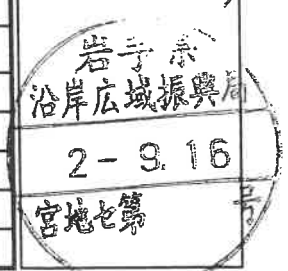 岩手県
沿岸広域振興局
2-9.16
宮地セ第 号